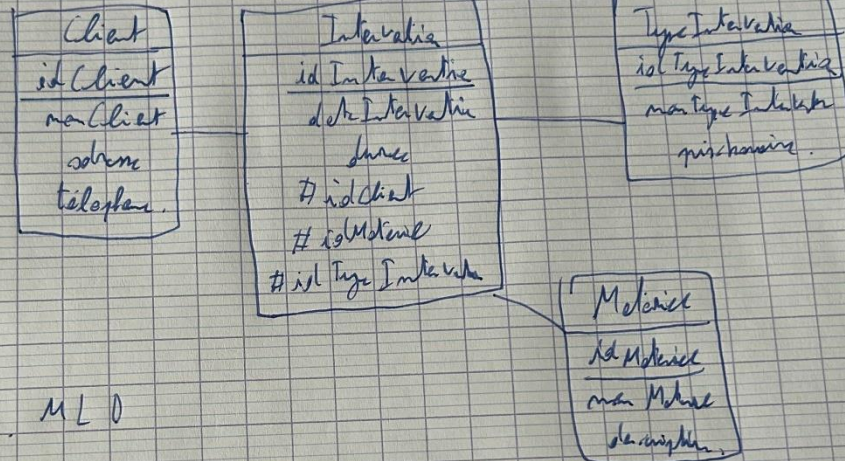 Client
idClient
nomClient
adresse
téléphone.
Intervention
idIntervention
dateIntervention
duree
#idClient
#idMateriel
#idTypeIntervention
TypeIntervention
idTypeIntervention
nomTypeIntervention
prixhoraire.
Materiel
idMateriel
nomMateriel
description.
MLD